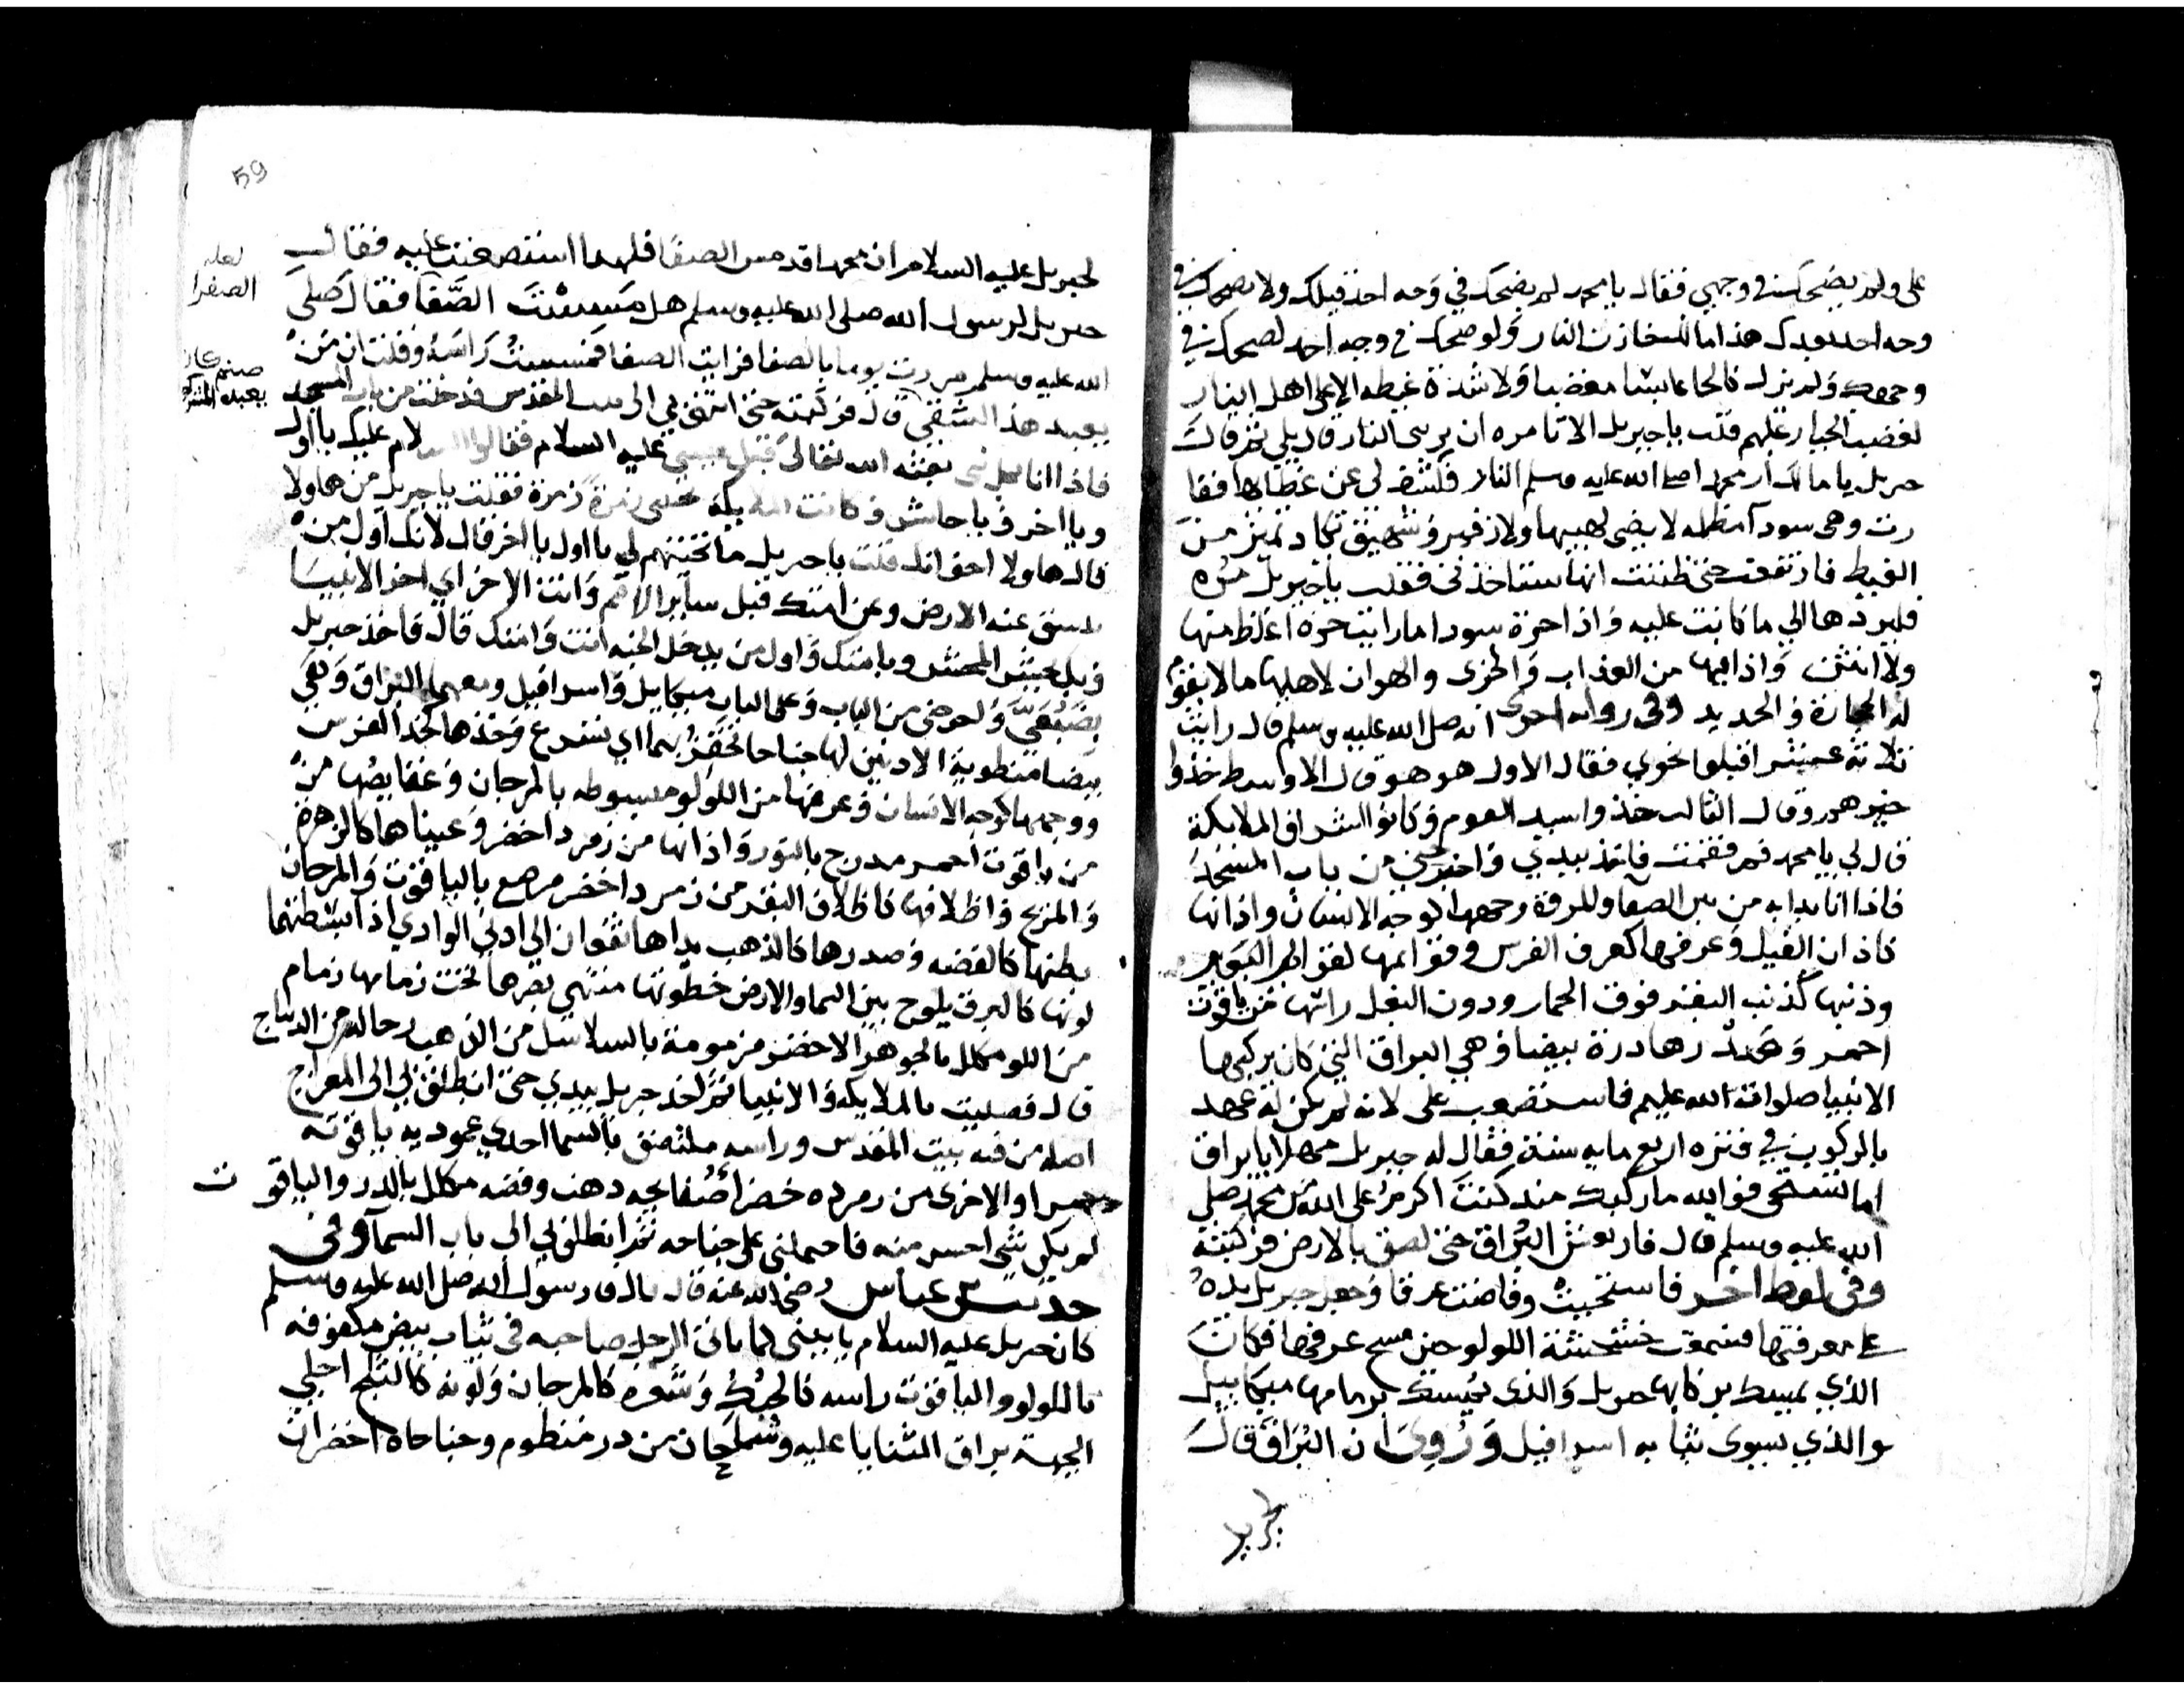 على ولم يضحك في وجهي فقال يا محمد لم يضحك في وجه احد قبلك ولا يضحك في
وجه احد بعدك هذا مالك خازن النار ولو ضحك في وجه احد لضحك في
وجهك ولم يزل كالحا عابسا مغضبا ولا شدة غيظه الا على اهل النار
لغضب الجبار عليهم قلت يا جبريل الا تامره ان يريني النار قال بلى ثم قال
جبريل يا مالك ار محمد اصلى الله عليه وسلم النار فكشف لي عن غطايها ففا
رت وهي سودآ مظلمه لا يضي لهيبها ولا زفير وشهيق تكاد تميز من
الغيظ فارتفعت حتى ظننت انها ستاخذني فقلت يا جبريل مره
فليردها الي ما كانت عليه واذا حرة سودا ما رايت حرة اغلظ منها
ولا انتن واذا فيها من العذاب والخزى والهوان لاهلها ما لا يقوم
له الحجارة والحديد وفي روايه اخرى انه صلى الله عليه وسلم قال رايت
ثلاثة اقبلوا نحوي فقال الاول هو هو قال الاوسط خذوا
خيرهم وقال الثالث خذوا سيد القوم وكانوا اشراف الملايكة
قال لي يا محمد قم فقمت فاخذ بيدي واخرجني من باب المسجد
فاذا انا بدابه من بين الصفا والمروة وجهها كوجه الانسان واذانها
كاذان الفيل وعرفها كعرف الفرس وقوايمها كقوايم البعير
وذنبها كذنب البقر فوق الحمار ودون البغل راسها من ياقوت
احمر وصدرها درة بيضا وهي البراق التي كان يركبها
الانبيا صلوات الله عليهم فاستصعب على لانه لم يكن له عهد
بالركوب في فتره اربع مايه سنة فقال له جبريل مهلا يا براق
اما تستحى فوالله ما ركبك منذ كنت اكرم على الله من محمد صلى
الله عليه وسلم قال فارتعش البراق حتى لصق بالارض فركبته
وفي لفظ اخر فاستحيت وفاضت عرقا وجعل جبريل يده
على معرفتها فسمعت خشخشة اللولو حين مسح عرفها فكان
الذي يمسك بركابها جبريل والذي يمسك بزمامها ميكاييل
والذي يسوى ثيابه اسرافيل وروى ان البراق قال
لجبريل
59
لجبريل عليه السلام ان محمدا قد مس الصفا فلهذا استصعبت عليه فقال
جبريل لرسول الله صلى الله عليه وسلم هل مسست الصفا فقال صلى
الله عليه وسلم مررت يوما بالصفا فرايت الصفا فمسست راسه وقلت ان من
يعبد هذا لشقي قال فركبته حتى انتهى بي الى بيت المقدس فدخلت من باب المسجد
فاذا انا بكل نبي بعثه الله تعالى قبل عيسى عليه السلام فقالوا السلام عليك يا اول
ويا اخر ويا حاشر وكانت الملايكة زمرة زمرة فقلت يا جبريل من هاولا
قال هاولا اخوانك قلت يا جبريل ما تحيتهم لي يا اول يا اخر قال لانك اول من
تنشق عنه الارض وعن امتك قبل ساير الامم وانت الاخر اي اخر الانبيا
وبك يحشر المحشر وبامتك واول من يدخل الجنه انت وامتك قال فاخذ جبريل
بضبعي واخرجني من الباب وعلى الباب ميكاييل واسرافيل ومعهما البراق وهي
بيضا منطوية الاذنين لها جناحا تحفز بهما اي تسرع وخدها كخد الفرس
ووجهها كوجه الانسان وعرفها من اللولو مسبوطه بالمرجان وعقايصها من
من ياقوت احمر مدرج بالنور واذانها من زمرد اخضر وعيناها كالزهرة
والمريخ واظلافها كاظلاف البقر من زمرد اخضر مرصع بالياقوت والمرجان
بطنها كالفضه وصدرها كالذهب يداها تقعان الى ادنى الوادي اذا بسطتهما
لونها كالبرق يلوح بين السما والارض خطوتها منتهى بصرها تحت زمامها زمام
من اللولو مكلل بالجوهر الاخضر مزمومة بالسلاسل من الذهب رحالها من الديباج
قال فصليت بالملايكه والانبيا ثم اخذ جبريل بيدي حتى انطلق بي الى المعراج
اصله من قبه بيت المقدس وراسه ملتصق بالسما احدى عموديه ياقوته
حمرا والاخرى من زمرده خضرا صفايحه ذهب وفضه مكلل بالدر والياقوت
لم يكن شي احسن منه فاحتملني على جناحه ثم انطلق بي الى باب السمآ وفى
حديث بن عباس رضي الله عنه قال قال رسول الله صلى الله عليه وسلم
كان جبريل عليه السلام ياتيني كما ياتي الرجل صاحبه في ثياب بيض مكفوفه
باللولو والياقوت راسه كالحبك وشعره كالمرجان ولونه كالثلج اجلى
الجبهة براق الثنايا عليه وشاحان من در منظوم وجناحاه اخضران
لعله
الصفرا
صنم كان
يعبده المشركون